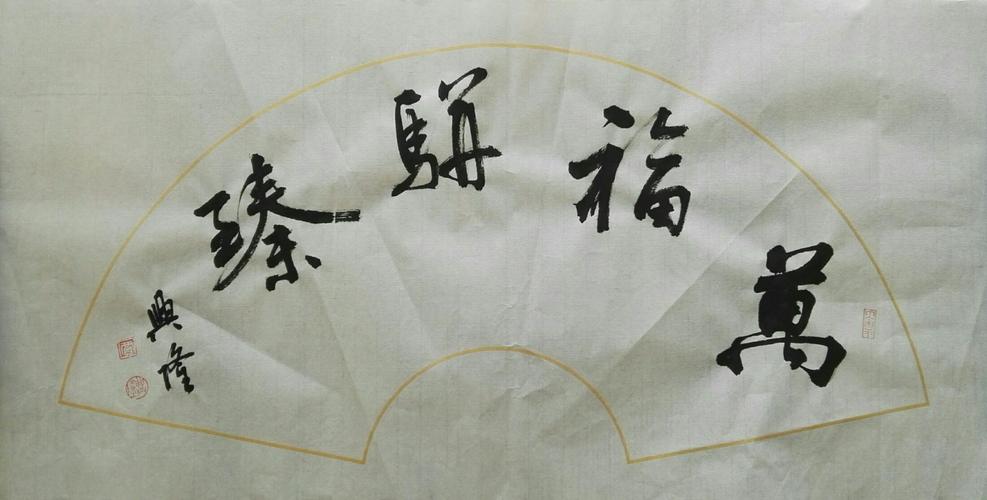 萬福駢臻
興隆